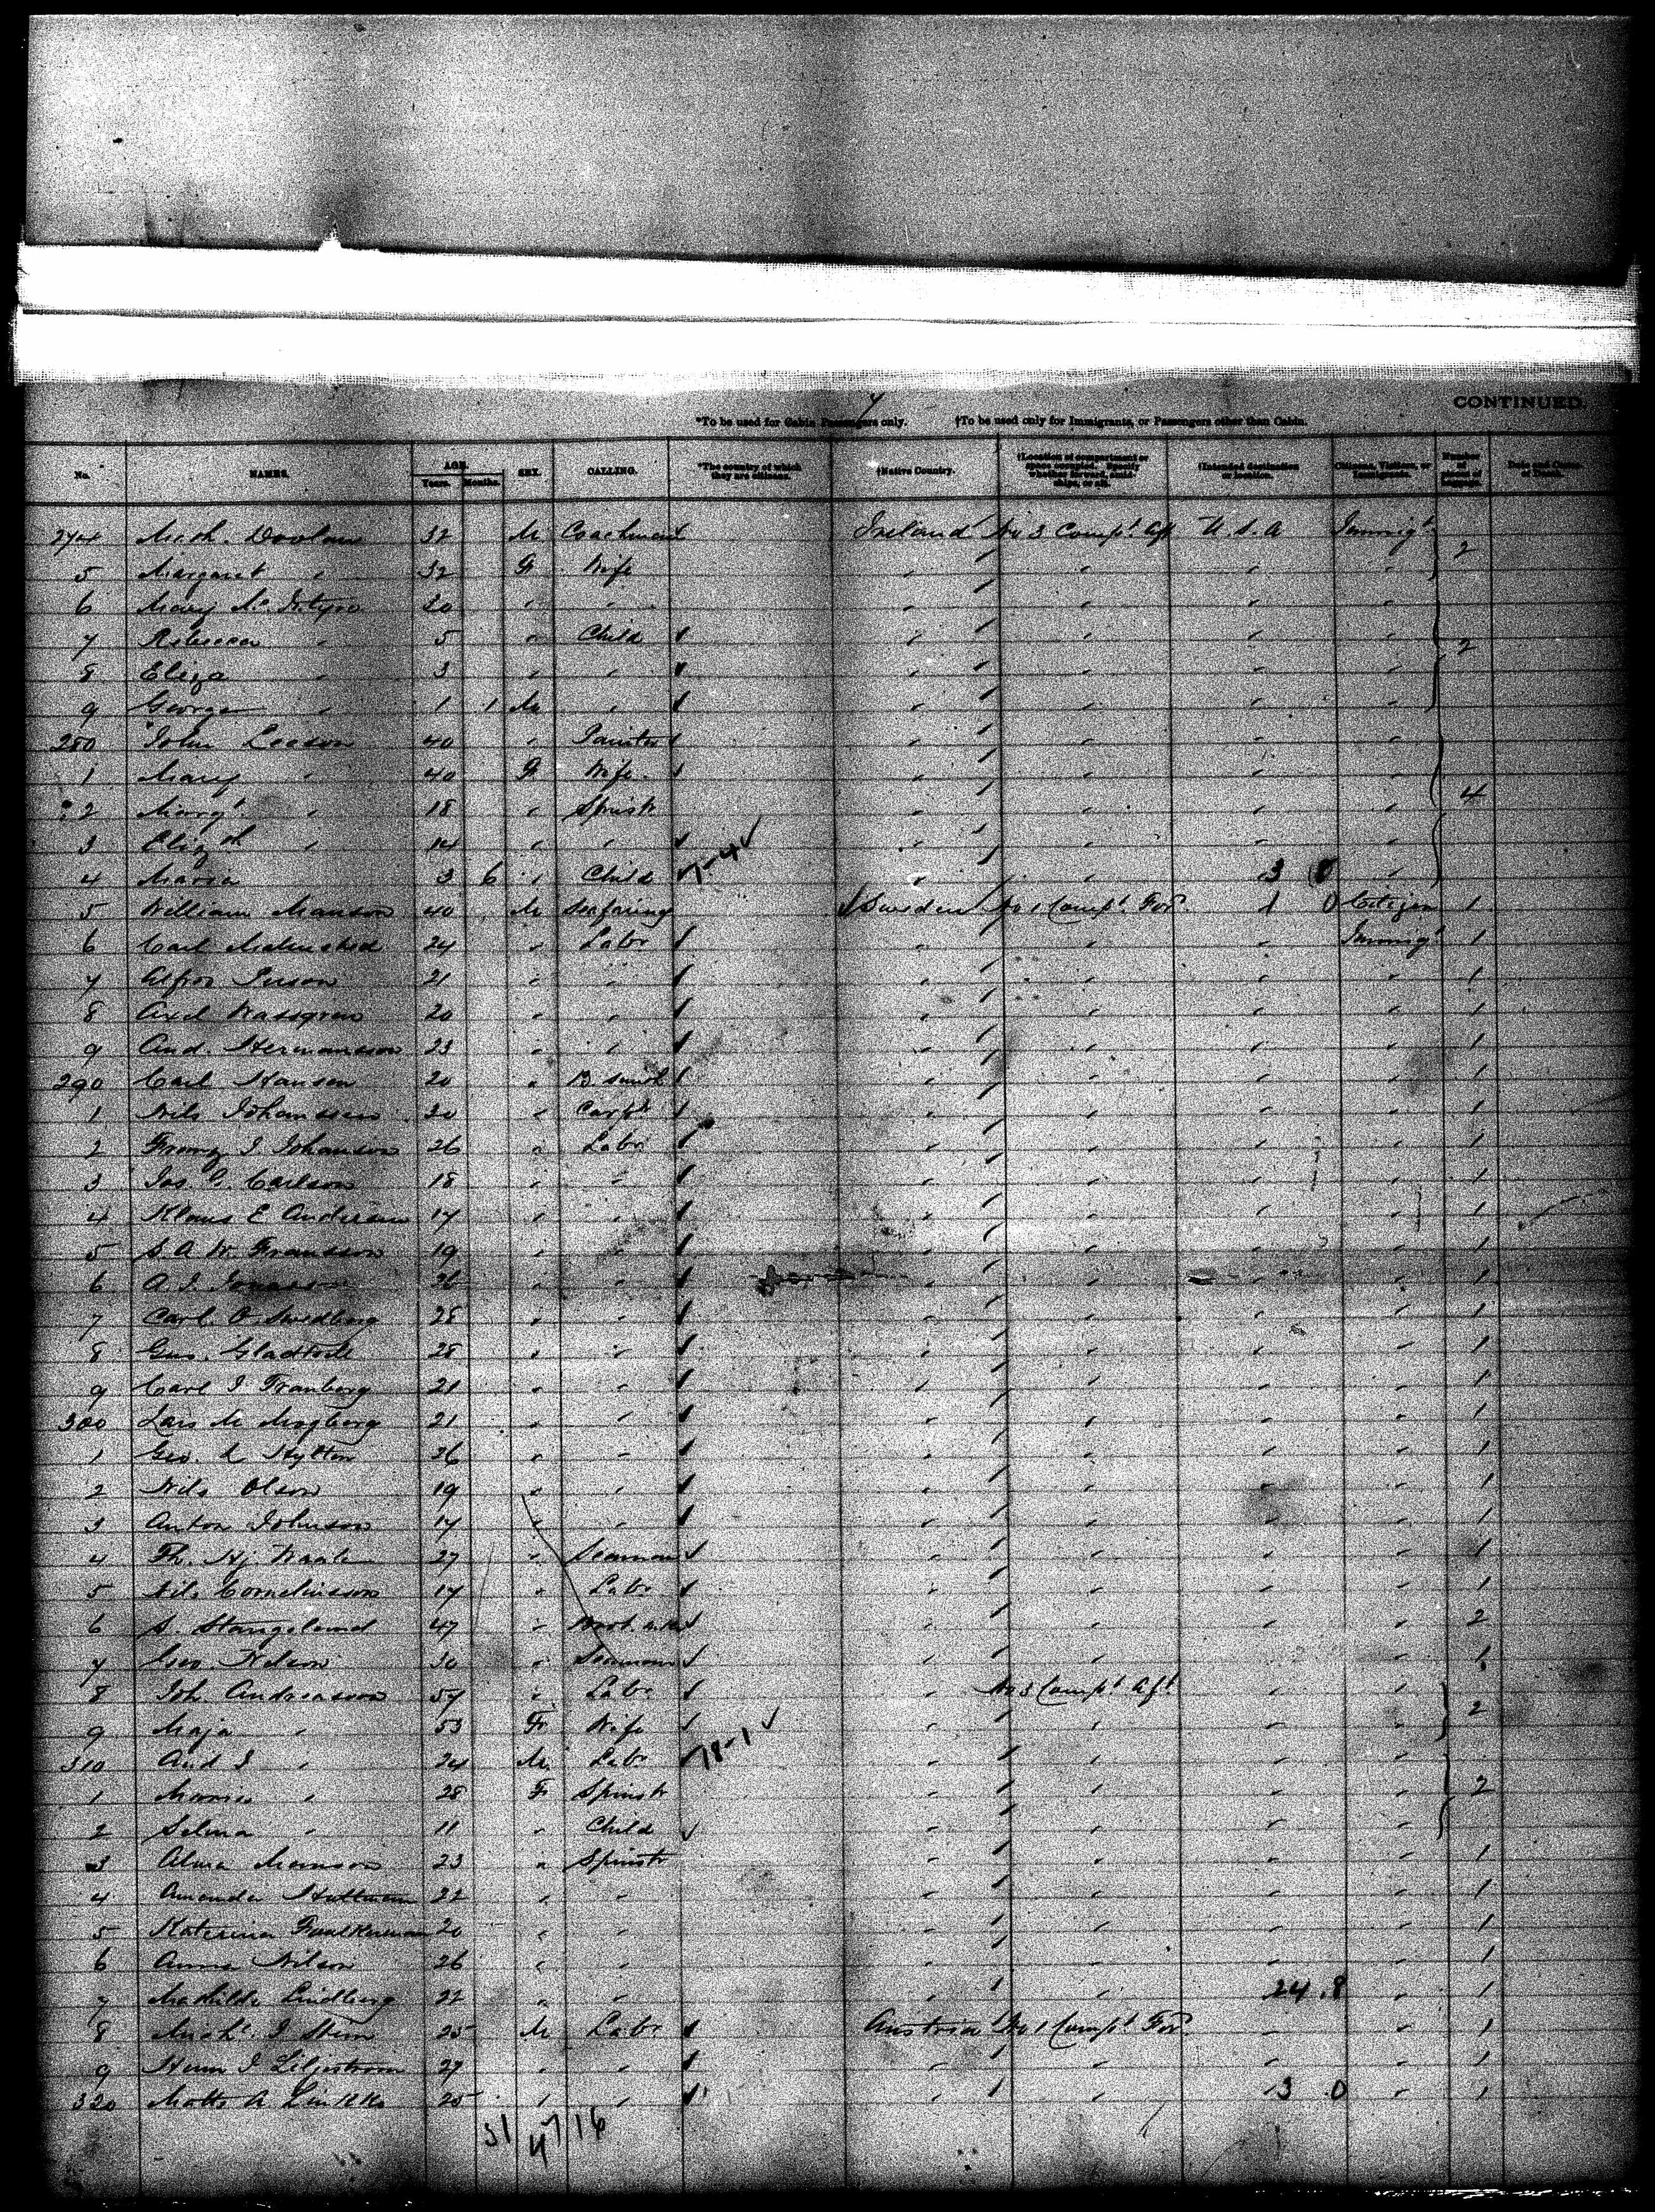 4
CONTINUED.
*To be used for Cabin Passengers only. †To be used only for Immigrants, or Passengers other than Cabin.
No. NAMES. AGE. Years. Months. SEX. CALLING. *The country of which they are citizens. †Native Country. †Location of compartment or space occupied. Specify whether forward, amidships, or aft. †Intended destination or location. Citizens, Visitors, or Immigrants. Number of pieces of baggage. Date and Cause of Death.
274 Mich. Doolan 32 M Coachman Ireland No 3 Compt. Aft U.S.A Immigt
5 Margaret " 32 F Wife " " " " 2
6 Mary 20 " " " " " "
7 Rebecca " 5 " Child " " " " 2
8 Eliza " 3 " " " " " "
9 George " 1 1 M " " " " "
280 John Leeson 40 " Painter " " " "
1 Mary " 40 F Wife " " " "
2 Margt. " 18 " Spinstr " " " " 4
3 Elizth " 14 " " " " " "
4 Maria 3 6 " Child 7-4 " " 3 0 "
5 William Manson 40 M Seafaring Sweden No 1 Compt. For. 1 0 Citizen 1
6 Carl 24 " Labr " " " Immigt 1
7 21 " " " " " " 1
8 Axel Wassgren 20 " " " " " " 1
9 And. Hermansson 23 " " " " " " 1
290 Carl Hansen 20 " B. smith " " " " 1
1 Nils Johanssen 20 " Carptr " " " " 1
2 I Johanson 26 " Labr " " " " 1
3 Jos. G. Carlson 18 " " " " " " 1
4 Klaus E Andersen 17 " " " " " " 1
5 S. A. W. Fransson 19 " " " " " " 1
6 A. I. Jonasson 26 " " " " " " 1
7 Carl. O. Swedberg 28 " " " " " " 1
8 Gus. 28 " " " " " " 1
9 Carl I Franberg 21 " " " " " " 1
300 Lars M 21 " " " " " " 1
1 Geo. L Hylten 26 " " " " " " 1
2 Nils Olson 19 " " " " " " 1
3 Anton Johnson 17 " " " " " " 1
4 Th. Hj. 27 " Seaman " " " " 1
5 Nils Corneliusson 17 " Labr " " " " 1
6 S. Stangeland 47 " " " " " 2
7 Geo. Nelson 30 " Seaman " " " " 1
8 Joh. Andreasson 57 " Labr " No 3 Compt Aft " "
9 Maja " 53 F Wife " " " " 2
310 And I " 24 M Labr 78-1 " " " "
1 Maria " 28 F Spinstr " " " " 2
2 Selma " 11 " Child " " " "
3 Alma Manson 23 " Spinstr " " " " 1
4 Amanda Hultman 22 " " " " " " 1
5 Katerina 20 " " " " " " 1
6 Anna Nilson 26 " " " " " " 1
7 Mathilda Lindberg 22 " " " " 24 8 " 1
8 Michl. I Stern 25 M Labr Austria No 1 Compt. For. " " 1
9 Herm I Liljestrom 27 " " " " " " 1
320 Matts A 25 " " " " 3 0 " 1
31 4 7 16